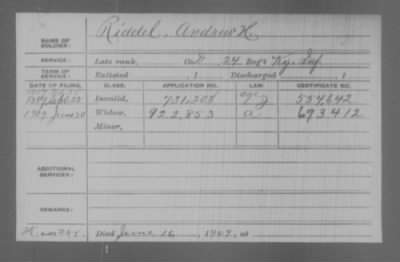 NAME OF SOLDIER: Riddel, Andrew H.
SERVICE: Late rank, Co. D 24 Reg't Ky. Inf
TERM OF SERVICE: Enlisted , 1 Discharged , 1
DATE OF FILING. CLASS. APPLICATION NO. LAW. CERTIFICATE NO.
Sept. 23 Invalid, 731,208 554,642
1909 June 28 Widow, 922,853 a 693412
Minor,
ADDITIONAL SERVICES:
REMARKS:
Died June 16, 1909, at